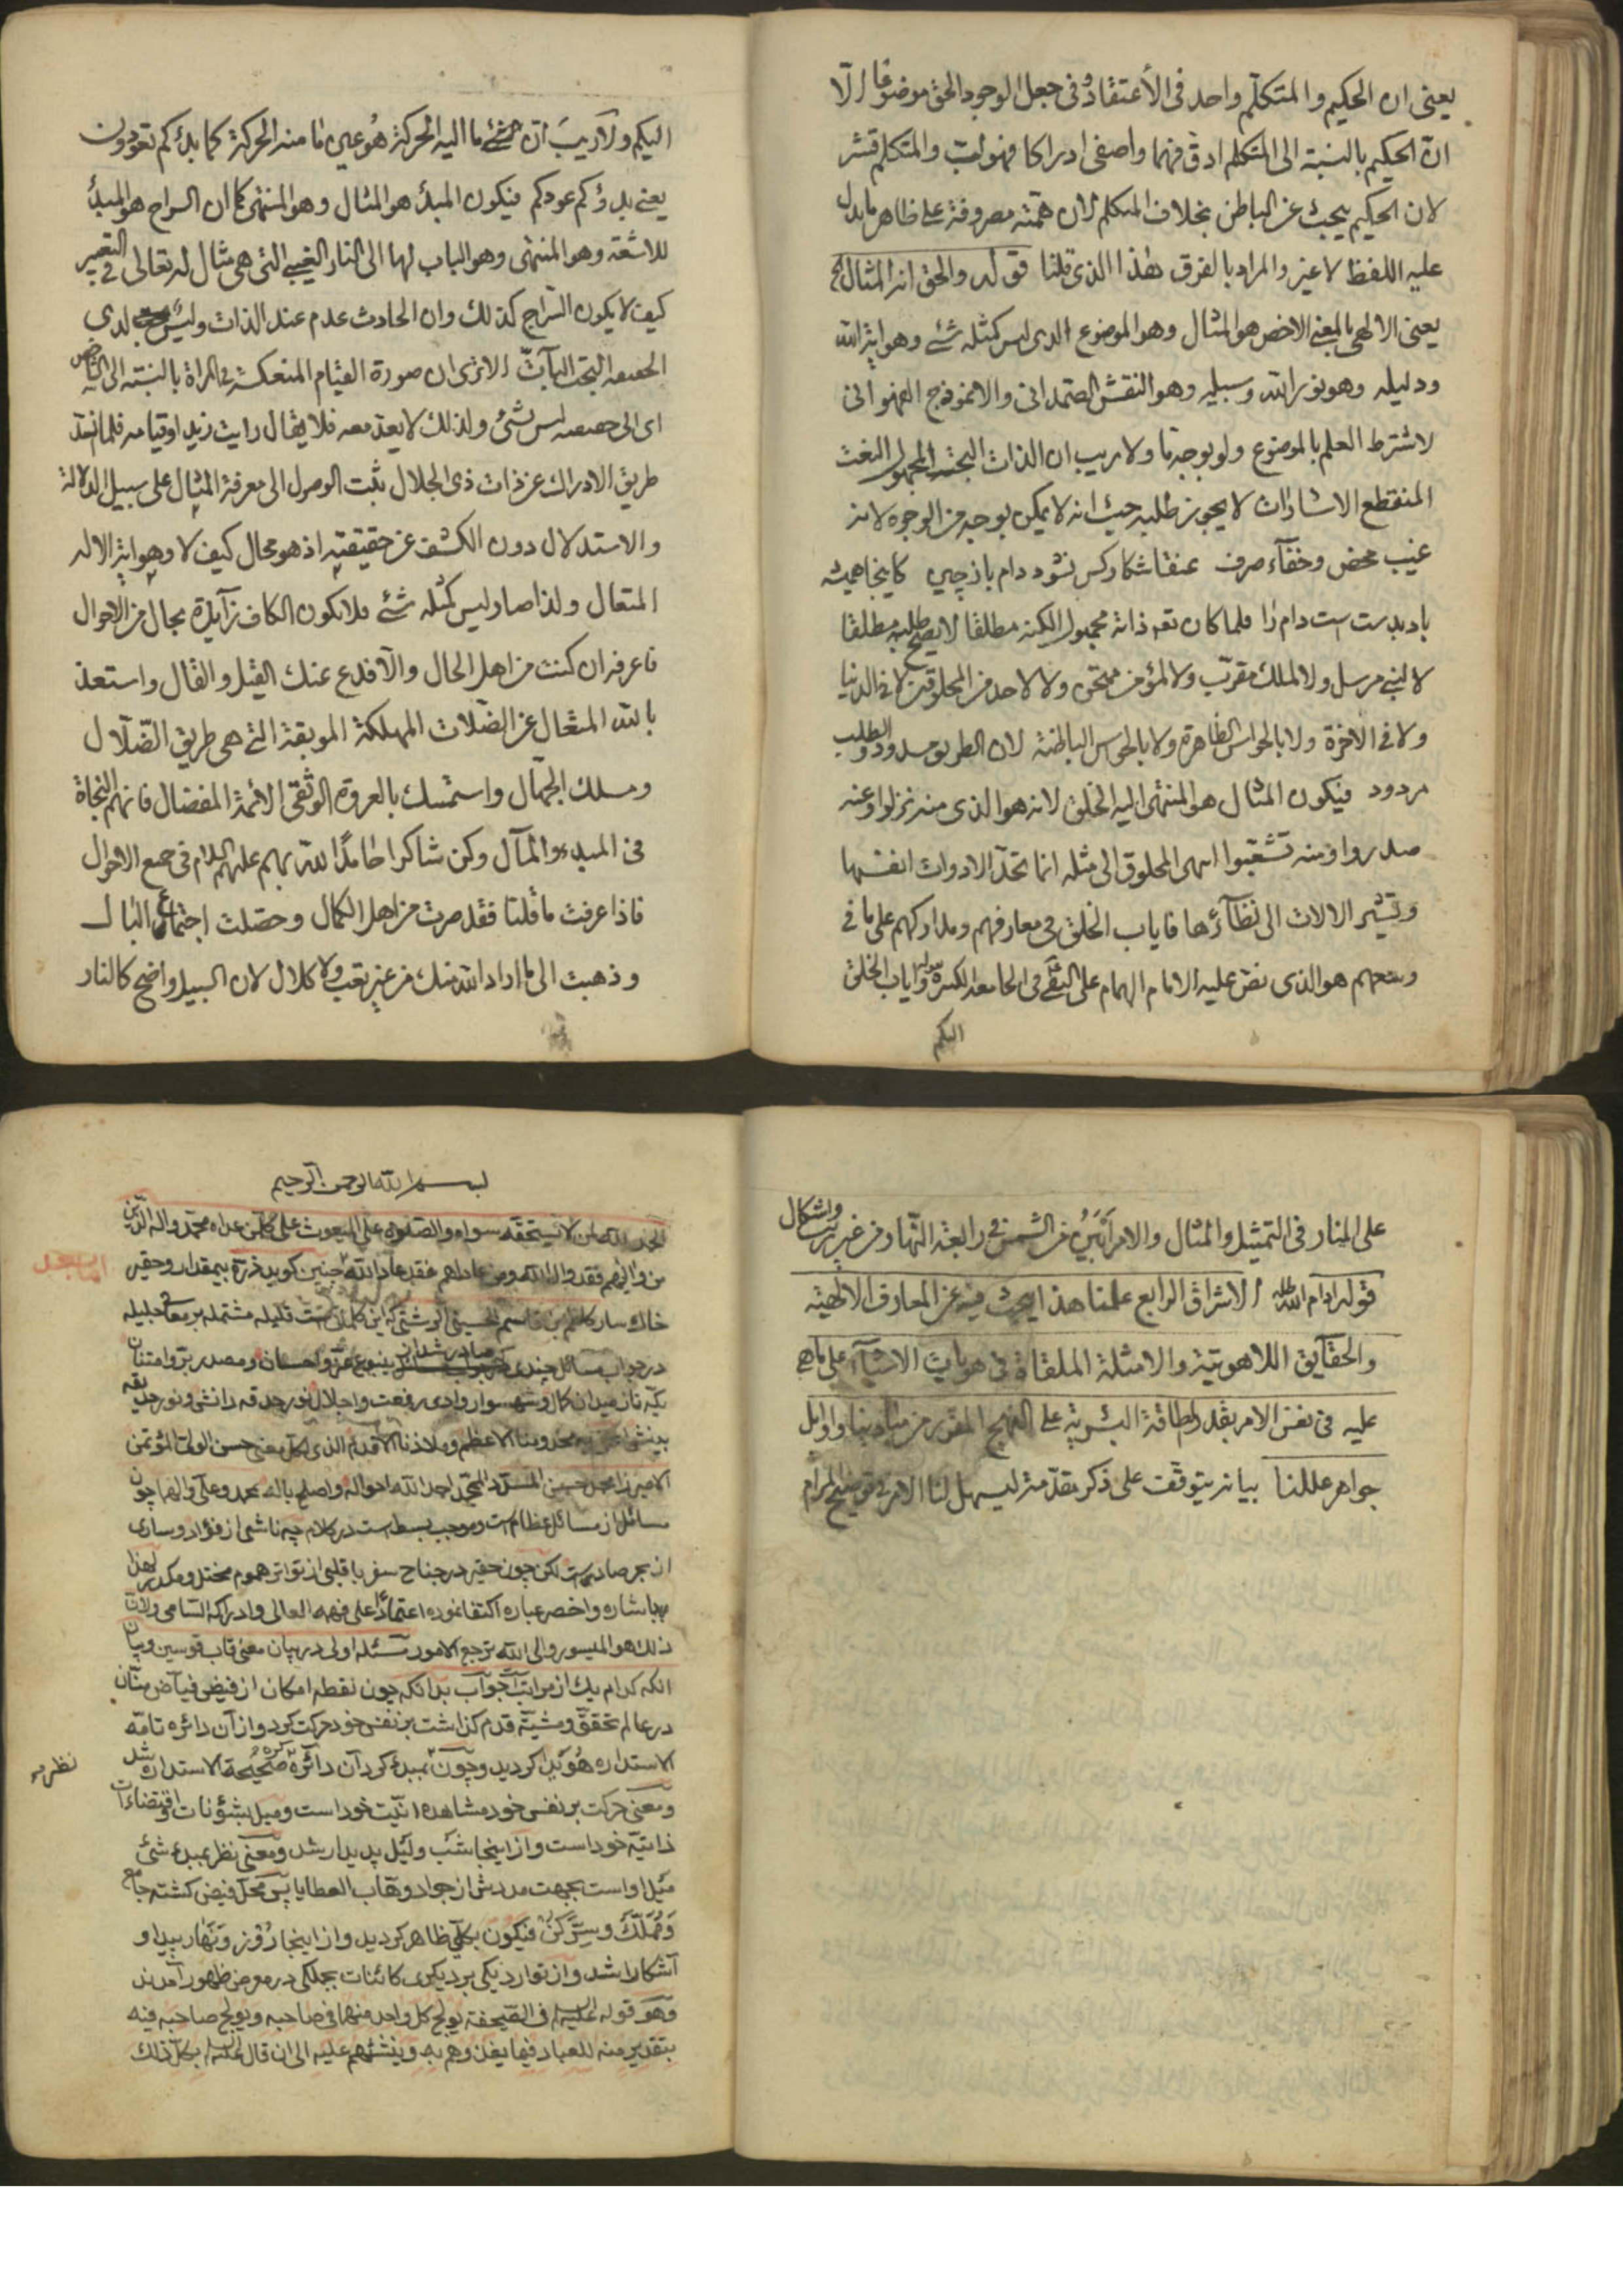 يعنى ان الحكيم والمتكلم واحد فى الأعتقاد وفى جعل الوجود الحق موضوعا الا
ان الحكيم بالنسبة الى المتكلم ادق فهما واصفى ادراكا فهو لب والمتكلم قشر
لان الحكيم يبحث عن الباطن بخلاف المتكلم لان همته مصروفة على ظاهر ما يدل
عليه اللفظ لا غير والمراد بالفرق هذا الذى قلنا قوله والحق انه المثال الخ
يعنى الالهى بالمعنى الاخص هو المثال وهو الموضوع الذى ليس كمثله شئ وهو اية الله
ودليله وهو نور الله وسبيله وهو النقش الصمدانى والانموذج الفهوانى
لاشتراط العلم بالموضوع ولو بوجه ما ولا ريب ان الذات البحتة المجهول النعت
المنقطع الاشارات لا يجوز طلبه حيث انه لا يمكن بوجه من الوجوه لانه
غيب محض وخفآء صرف عنقا شكار كس نشود دام باز چين كاينجا هميشه
باد بدست است دام را فلما كان تعه ذاته مجهول الكنه مطلقا لا يصح طلبه مطلقا
لا لنبى مرسل ولا لملك مقرب ولا لمؤمن ممتحن ولا لاحد من المخلوقين لا فى الدنيا
ولا فى الاخرة ولا بالحواس الظاهرة ولا بالحواس الباطنة لان الطريق مسدود والطلب
مردود فيكون المثال هو المنتهى اليه الخلق لانه هو الذى منه نزلوا وعنه
صدروا ومنه تشعبوا انتهى المخلوق الى مثله انما تحد الادوات انفسها
وتشير الالات الى نظآئرها فاياب الخلق فى معارفهم ومداركهم على ما فى
وسعهم هو الذى نص عليه الامام الهمام على النقى فى الجامعة الكبيرة بقوله واياب الخلق
اليكم
اليكم ولا ريب ان الشئ ما اليه الحركة هو عين ما منه الحركة كما بدئكم تعودون
يعنى بدؤكم عودكم فيكون المبدء هو المثال وهو المنتهى كما ان السراج هو المبدء
للاشعة وهو المنتهى وهو الباب لها الى النار الغيبى التى هى مثال له تعالى فى التعبير
كيف لا يكون السراج كذلك وان الحادث عدم عند الذات وليس لدى
الحقيقة البحت البات الا ترى ان صورة القيام المنعكسة فى المراة بالنسبة الى الشاخص
اى الى حقيقته ليس بشئ ولذلك لا يعد معه فلا يقال رايت زيد او قيامه فلما انسد
طريق الادراك عن ذات ذى الجلال ثبت الوصول الى معرفة المثال على سبيل الدلالة
والاستدلال دون الكشف عن حقيقتيه اذ هو محال كيف لا وهو اية الاله
المتعال ولذا صار ليس كمثله شئ فلا تكون الكاف زآيدة بحال من الاحوال
فاعرف ان كنت من اهل الحال والا فدع عنك القيل والقال واستعذ
بالله المتعال عن الضلات المهلكة الموبقة التى هى طريق الضلال
ومسلك الجهال واستمسك بالعروة الوثقى الائمة المفضال فانهم النجاة
فى المبدء والمآل وكن شاكرا حامدا لله بهم عليهم السلام فى جميع الاحوال
فاذا عرفت ما قلنا فقد صرت من اهل الكمال وحصلت اجتماع البال
وذهبت الى ما اراد الله منك من غير تعب ولا كلال لان السبيل واضح كالنار
على المنار فى التمثيل والمثال والامر ابين من الشمس فى رابعة النهار من غير ريب واشكال
قوله ادام الله ظله الاشراق الرابع علمنا هذا يبحث فيه عن المعارف الالهية
والحقآيق اللاهوتية والامثلة الملقاة فى هويات الاشيآء على ما هى
عليه فى نفس الامر بقدر الطاقة البشرية على النهج المقرر من مبادينا واوايل
جواهر عللنا بيانه يتوقف على ذكر مقدمة ليسهل لنا الامر فى توضيح المرام
بسم الله الرحمن الرحيم
الحمد لله لمن لا يستحقه سواه والصلوة على المبعوث على كل من عداه محمد واله الذين
من والاهم فقد والى الله ومن عاداهم فقد عاد الله چنين كويد ذرۀ بيمقدار وحقير
خاكسار كاظم بن قاسم الحسينى الرشتى كه اين كلماتيست قليله مشتمله بر معانى جليله
در جواب مسائل چندى كه صادر شد از ينبوع عز واحسان ومصدر بر وامتنان
يكه تاز ميدان كمال وشهسوار وادى رفعت واجلال نور حدقه دانش ونور حديقه
بينش مخدومنا الاعظم وملاذنا الاقدم الذى لكل معنى حسن الولى المؤتمن
الاميرزا محمد حسين احمد الله احواله واصلح باله بمحمد وعلى والهما چون
مسائل از مسائل عظام است وموجب بسط است در كلام چه ناشى از فؤاد وسارى
از بحر صاد است لكن چون حقير در جناح سفر با قلبى از تواتر هموم مختل ومكدر لهذا
باشاره واخصر عباره اكتفا نموده اعتمادًا على فهمه العالى وادراكه السامى ولان
ذلك هو الميسور والى الله ترجع الامور مسئله اولى در بيان معنى قاب قوسين وبيان
انكه كدام يك از مراتب است جواب بدانكه چون نقطه امكان از فيض فياض منان
در عالم تحقق ومشية قدم كذاشت بر نفس خود حركت كرد واز آن دائره تامه
الاستداره هويدا كرديد وچون بمبدء كرد آن دائره كره صحيحة الاستداره شد
نظر
ومعنى حركت بر نفس خود مشاهده انيت خود است وميل بشؤنات واقتضاءات
ذاتيه خود است واز اينجا شب وليل پديدار شد ومعنى نظر بمبدء شئ
ميل او است بجهت مددش از جواد وهاب العطايا پس محل فيض كشته جامع
وسر كن فيكون بكلى ظاهر كرديد واز اينجا روز ونهار پيدا و
آشكارا شد واز توارد يكى بر ديكرى كائنات بجملكى در معرض ظهور آمدند
وهو قوله عليه السلام فى الصحيفة يولج كل واحد منهما فى صاحبه ويولج صاحبه فيه
بتقدير منه للعباد فيما يغذوهم به وينشئهم عليه الى ان قال عليه السلام بكل ذلك